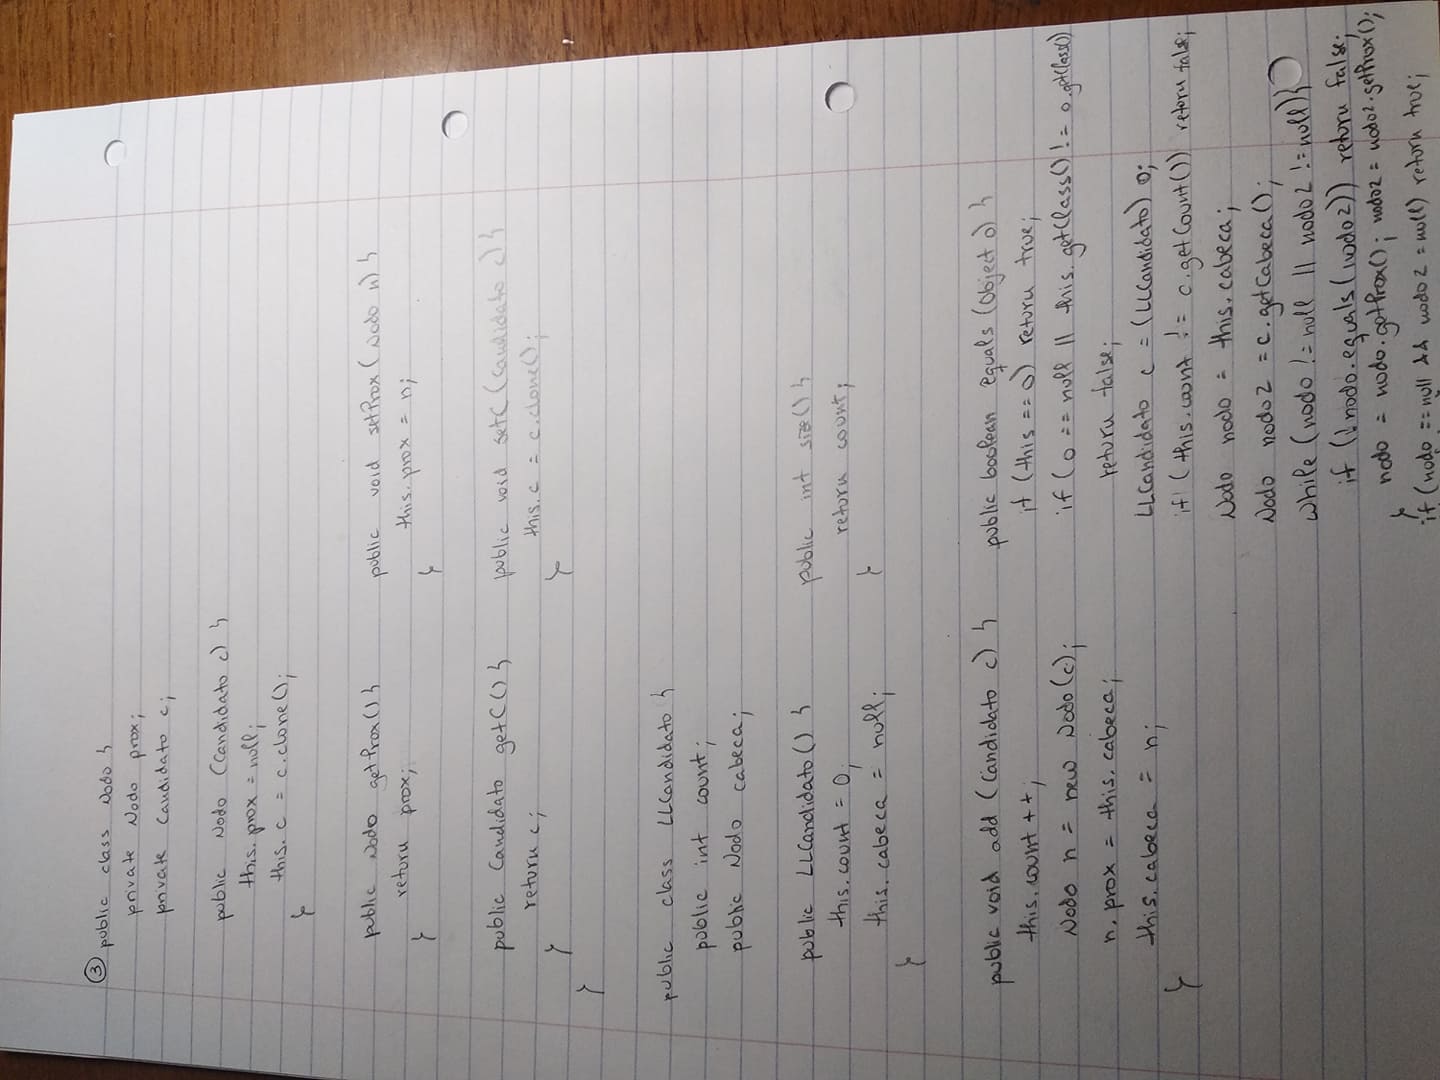 ③ public class Nodo {
private Nodo prox;
private Candidato c;
public Nodo (Candidato c) {
this.prox = null;
this.c = c.clone();
}
public Nodo getProx() {
return prox;
}
public void setProx (Nodo n) {
this.prox = n;
}
public Candidato getC() {
return c;
}
public void setC (Candidato c) {
this.c = c.clone();
}
}
public class LLCandidato {
public int count;
public Nodo cabeca;
public LLCandidato() {
this.count = 0;
this.cabeca = null;
}
public int size() {
return count;
}
public void add (Candidato c) {
this.count ++;
Nodo n = new Nodo(c);
n.prox = this.cabeca;
this.cabeca = n;
}
public boolean equals (Object o) {
if (this == o) return true;
if (o == null || this.getClass() != o.getClass())
return false;
LLCandidato c = (LLCandidato) o;
if (this.count != c.getCount()) return false;
Nodo nodo = this.cabeca;
Nodo nodo2 = c.getCabeca();
while (nodo != null || nodo2 != null) {
if (!nodo.equals(nodo2)) return false;
nodo = nodo.getProx(); nodo2 = nodo2.getProx();
}
if (nodo == null && nodo2 = null) return true;